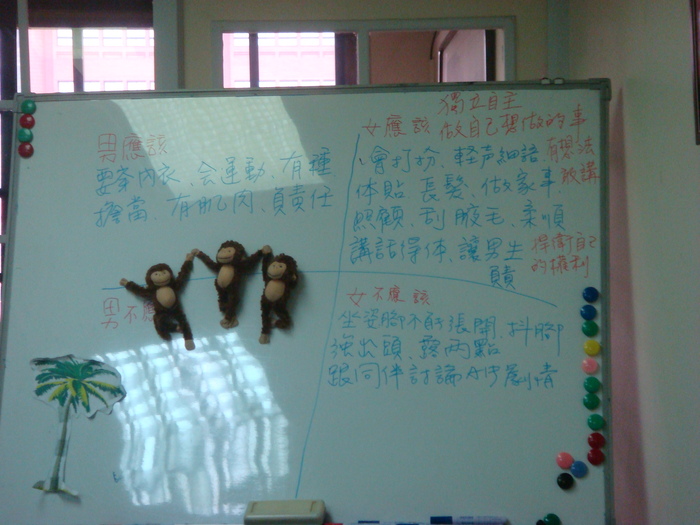 男應該
要穿內衣、会運動、有種
擔當、有肌肉、負責任
男不應
獨立自主
女應該 做自己想做的事
會打扮、輕声細語 有想法
体貼、長髮、做家事 敢講
照顧、刮腋毛、柔順
講話得体、讓男生 捍衛自己
的權利
女不應該
坐姿腳不能張開、抖腳
強出頭、露兩點
跟同伴討論A片劇情